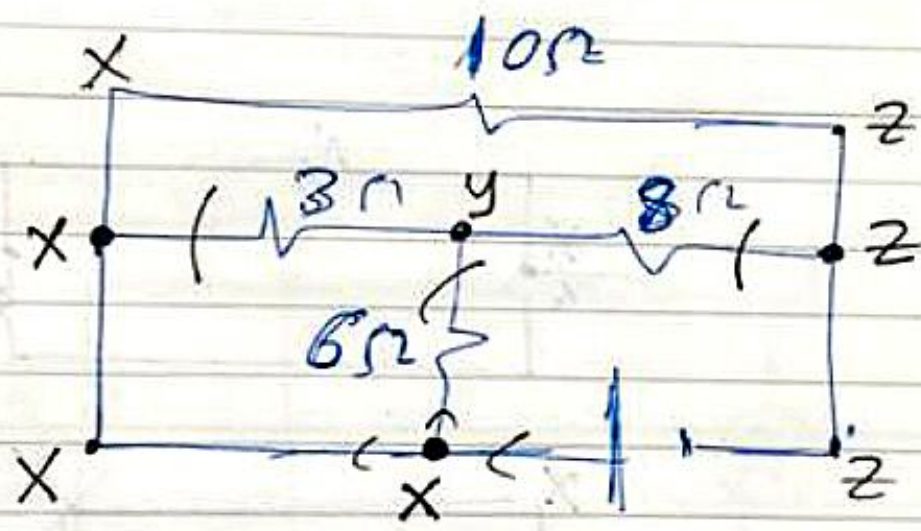 10Ω
X Z
X 3Ω y 8Ω Z
6Ω
X X Z